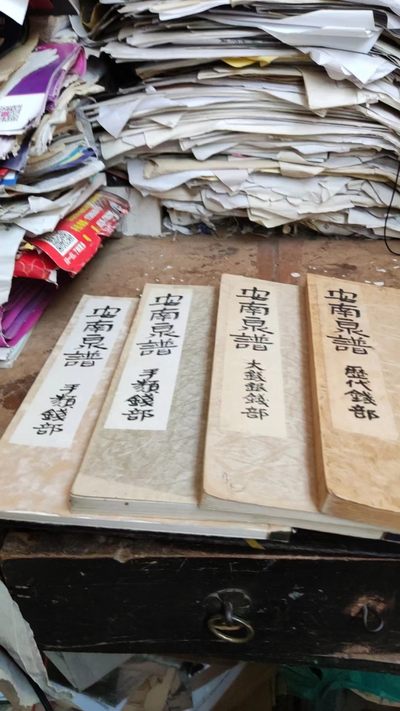 安南泉譜
手類錢部
安南泉譜
手類錢部
安南泉譜
大錢銀錢部
安南泉譜
歷代錢部